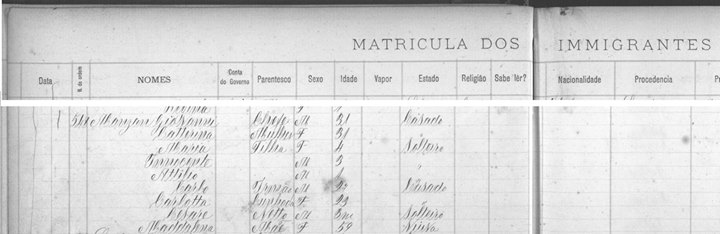 MATRICULA DOS IMMIGRANTES
Data N. de ordem NOMES Conta do Governo Parentesco Sexo Idade Vapor Estado Religião Sabe lêr? Nacionalidade Procedencia
Regina F
Giovanni Chefe M 31 Casado
Catterina Mulher F 31
Maria Filha F 4 Solteiro
Innocente M 3 "
Attilio M
Carlo Irmão M Casado
Carlotta Cunhada F 23
Cesare Netto M Solteiro
Maddalena Mãe F 59 Viuva